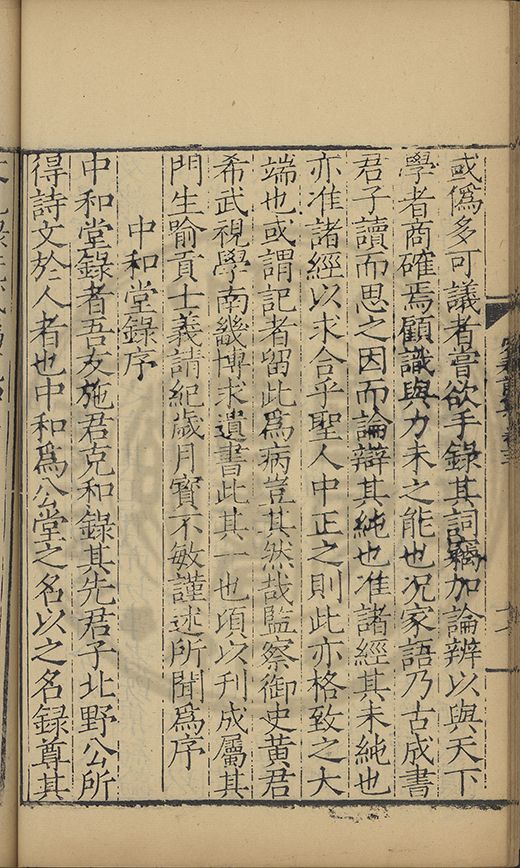 或僞多可議者嘗欲手錄其詞竊加論辨以與天下
學者商確焉顧識與力未之能也况家語乃古成書
君子讀而思之因而論辯其純也准諸經其未純也
亦准諸經以求合乎聖人中正之則此亦格致之大
端也或謂記者留此爲病豈其然哉監察御史黃君
希武視學南畿博求遺書此其一也頃以刊成屬其
門生喻貢士義請紀歲月寳不敏謹述所聞爲序
中和堂錄序
中和堂錄者吾友施君克和錄其先君子北野公所
得詩文於人者也中和爲公堂之名以之名録尊其